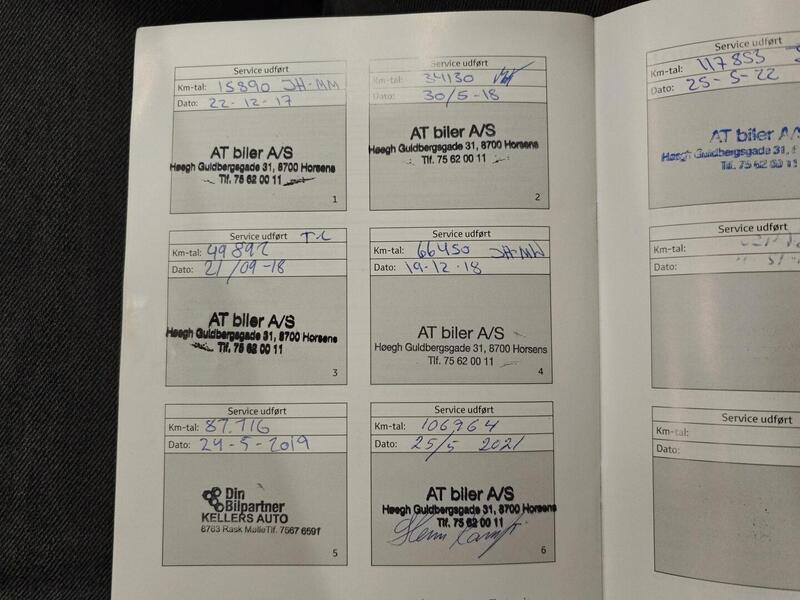 Service udført
Km-tal: 15890 JH-MM
Dato: 22-12-17
AT biler A/S
Høegh Guldbergsgade 31, 8700 Horsens
Tlf. 75 62 00 11
1
Service udført
Km-tal: 34130
Dato: 30/5-18
AT biler A/S
Høegh Guldbergsgade 31, 8700 Horsens
Tlf. 75 62 00 11
2
Service udført
Km-tal: 49892
Dato: 21/09-18
AT biler A/S
Høegh Guldbergsgade 31, 8700 Horsens
Tlf. 75 62 00 11
3
Service udført
Km-tal: 66450 JH-MW
Dato: 19-12-18
AT biler A/S
Høegh Guldbergsgade 31, 8700 Horsens
Tlf. 75 62 00 11
4
Service udført
Km-tal: 87.716
Dato: 24-5-2019
Din
Bilpartner
KELLERS AUTO
8763 Rask Mølle Tlf. 7567 6591
5
Service udført
Km-tal: 106964
Dato: 25/5 2021
AT biler A/S
Høegh Guldbergsgade 31, 8700 Horsens
Tlf. 75 62 00 11
6
Service udført
Km-tal: 117853
Dato: 25-5-22
AT biler A/
Høegh Guldbergsgade 31,
Tlf. 75 62 00 1
Service udført
Km-tal:
Dato:
Service udført
Km-tal:
Dato: